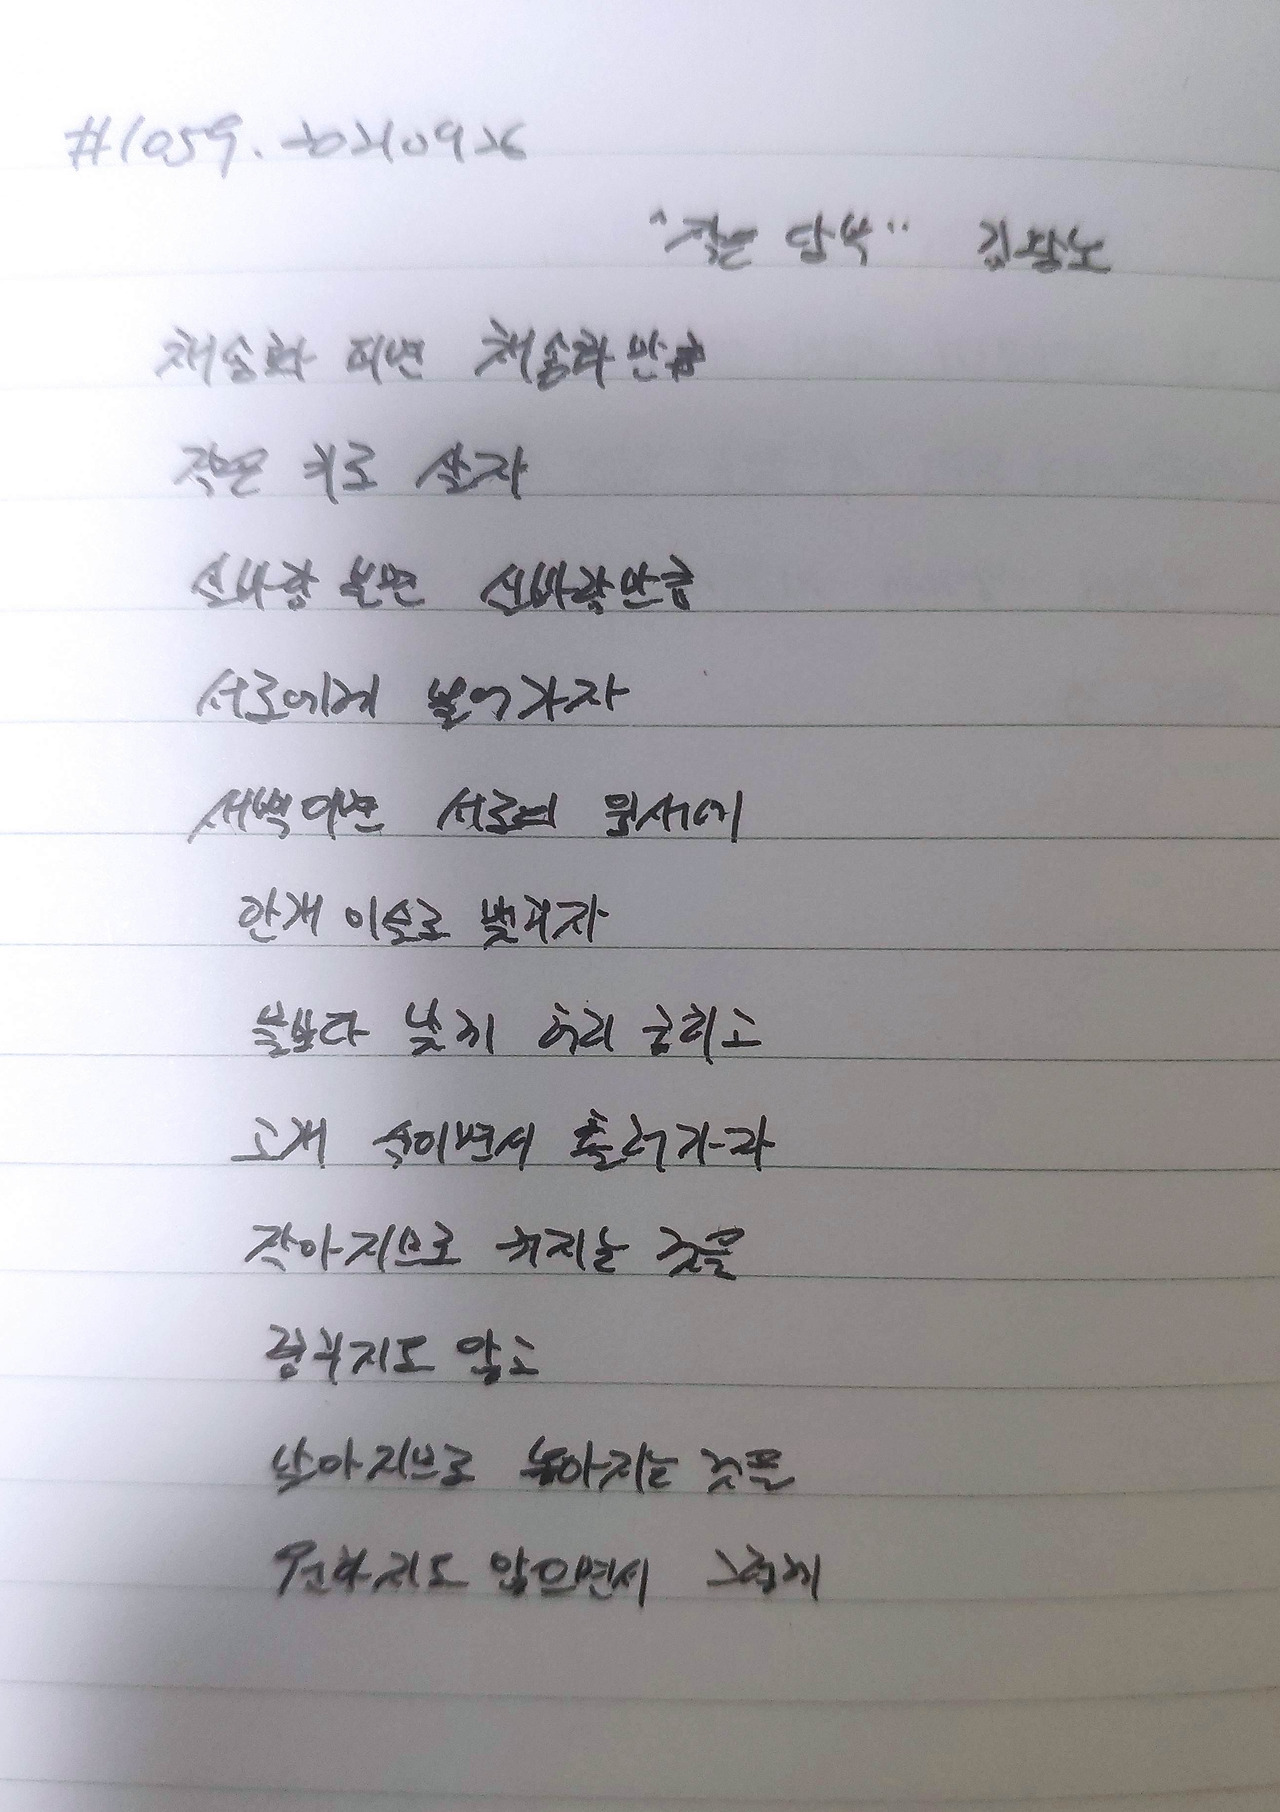 #1059. 20210926
"작은 당부" 김왕노
채송화 피면 채송화만큼
작은 키로 살자
신바람 불면 신바람만큼
서로에게 불어가자
새벽이면 서로의 잎새에
안개 이슬로 맺히자
물보다 낮게 허리 굽히고
고개 숙이면서 흘러가자
작아지므로 커지는 것을
꿈꾸지도 않고
낮아지므로 높아지는 것을
원하지도 않으면서 그렇게